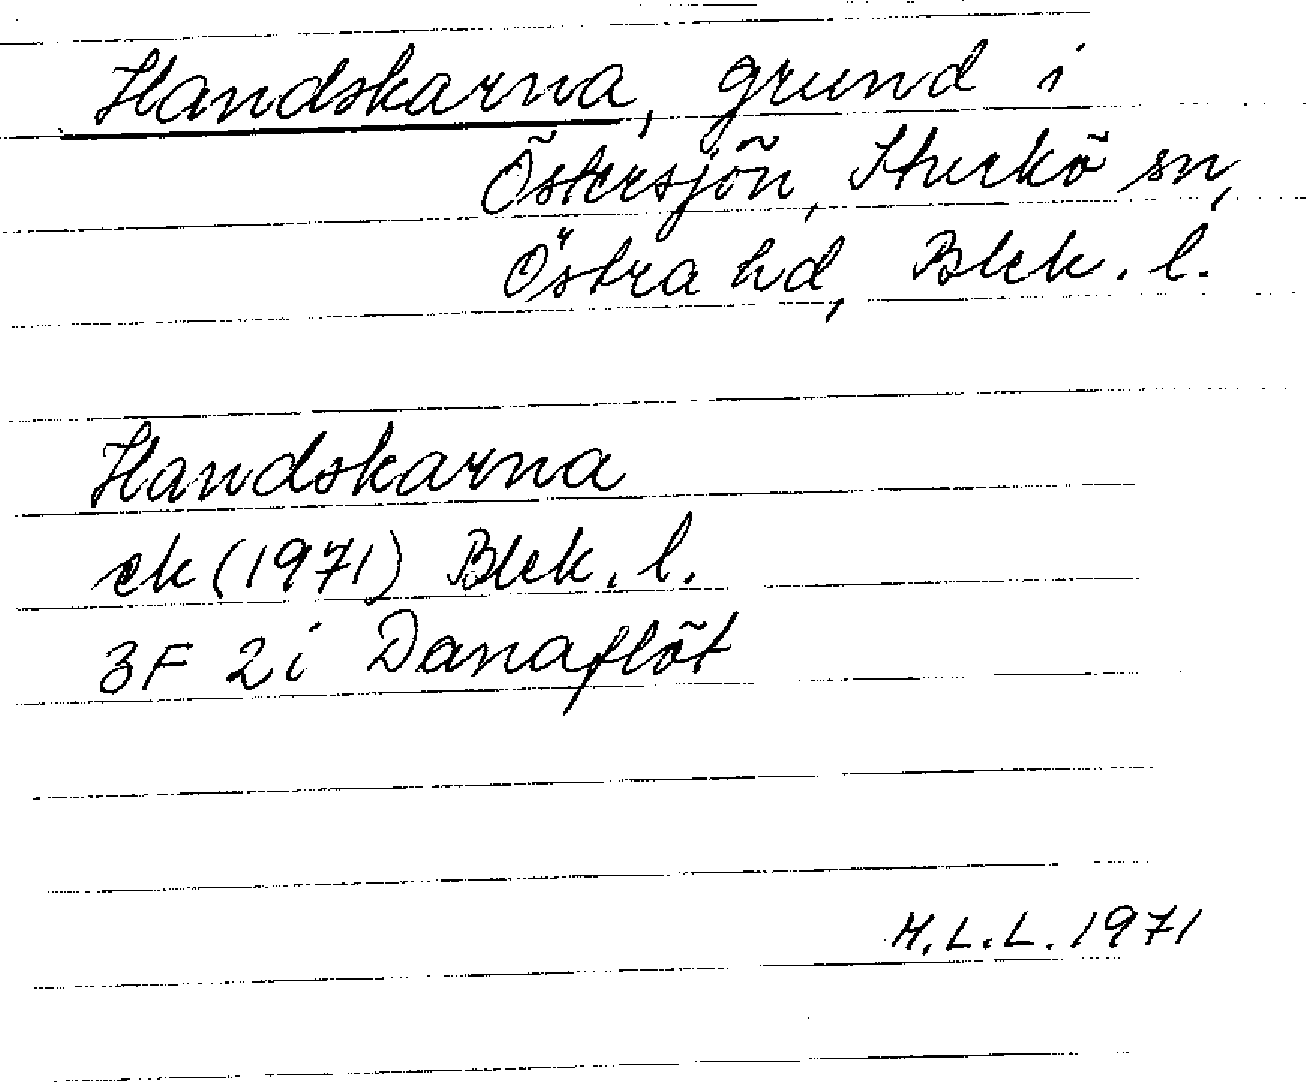 Handskarna, grund i
Östersjön, Sturkö sn,
Östra hd, Blek. l.
Handskarna
ek (1971) Blek. l.
3F 2i Danaflöt
M.L.L. 1971